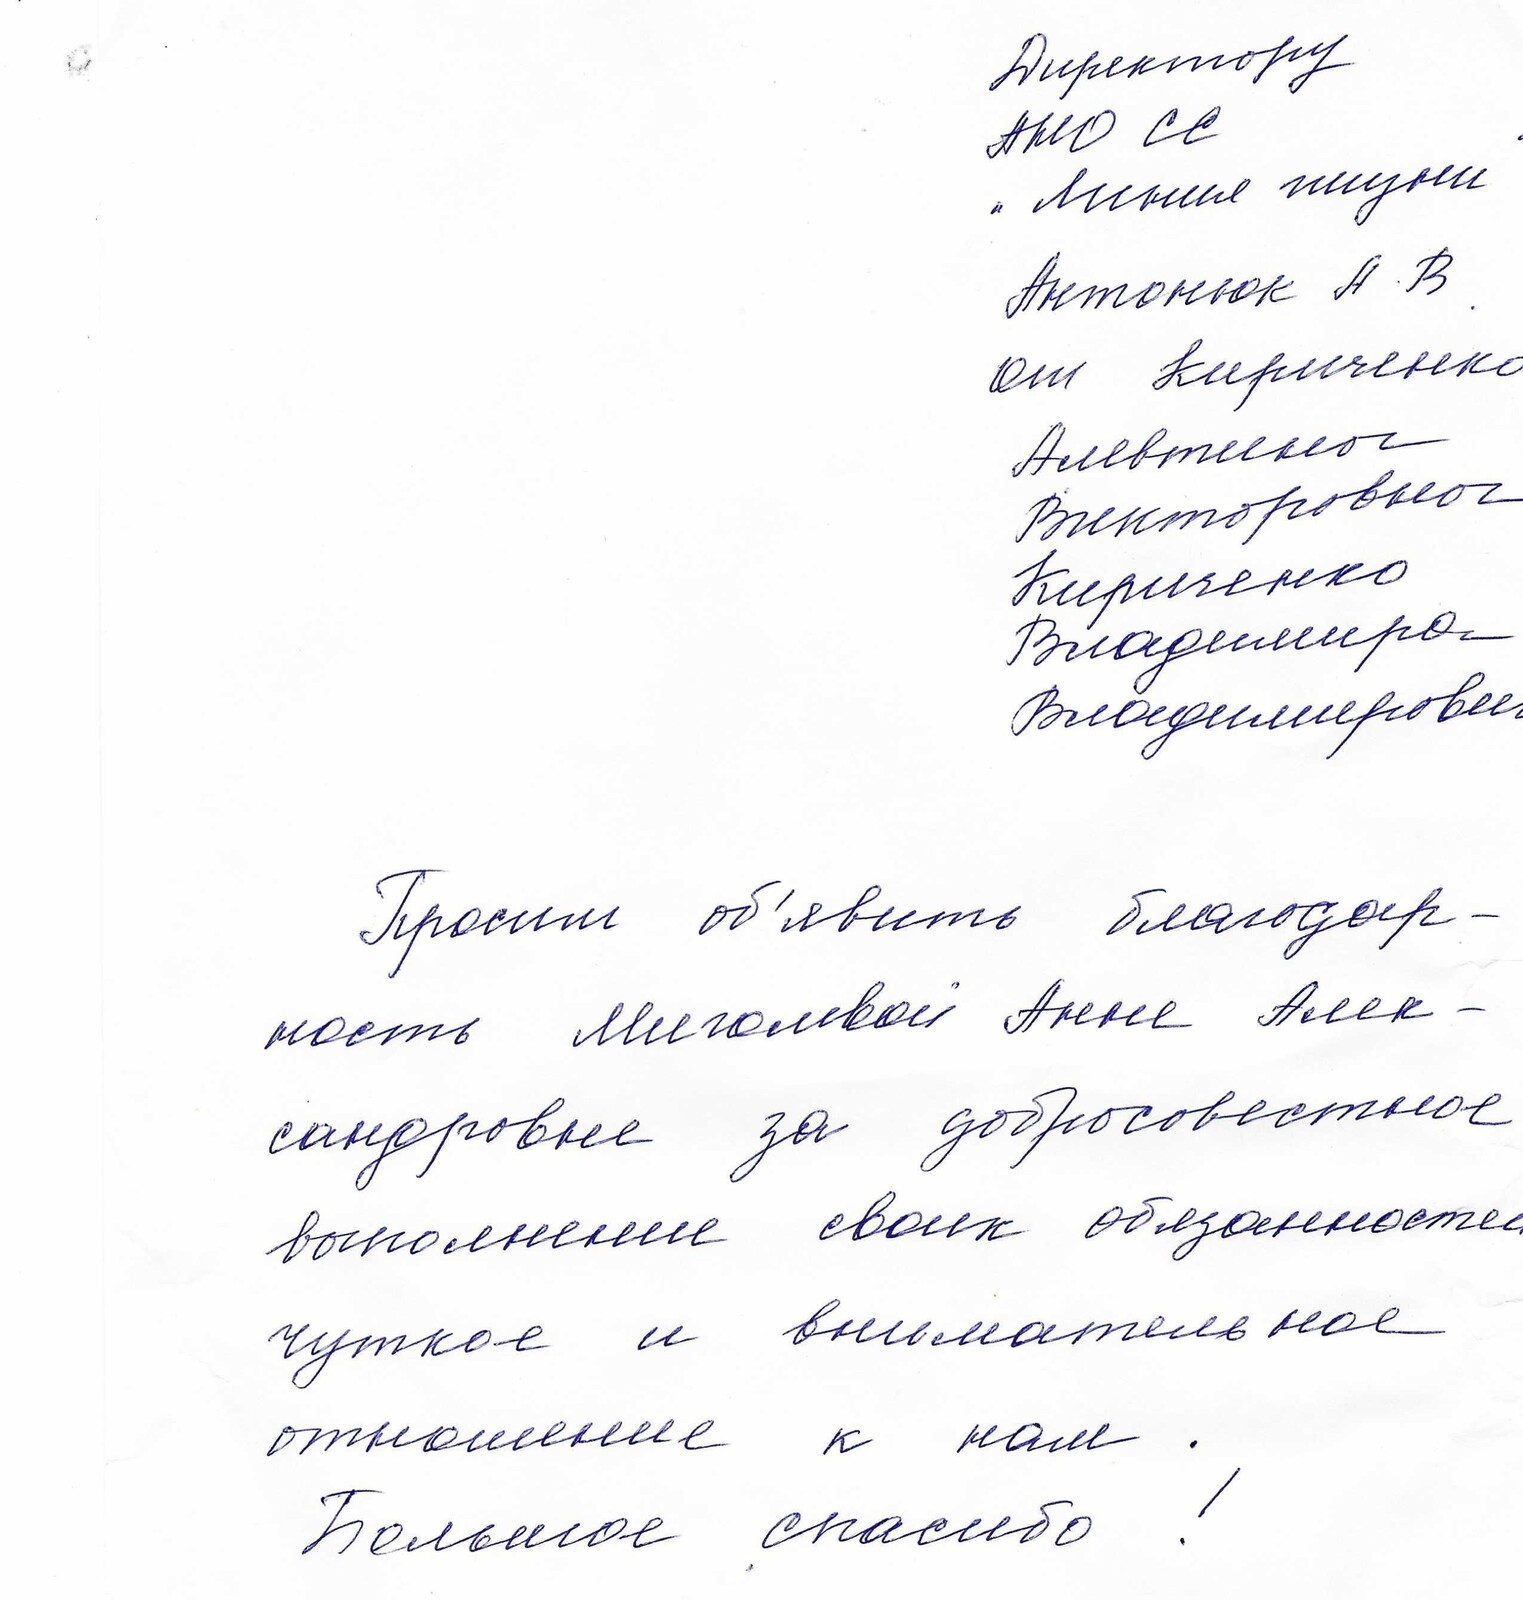 Директору
АНО СС
"Линия жизни
Антонюк А.В.
От Кириченко
Алевтиног
Викторовног
Кириченко
Владимира
Владимирович
Просим об'явить благодар-
ность Анне Алек-
сандровне за добросовестное
выполнение своих обязанностей
чуткое и внимательное
отношение к нам.
Большое спасибо!